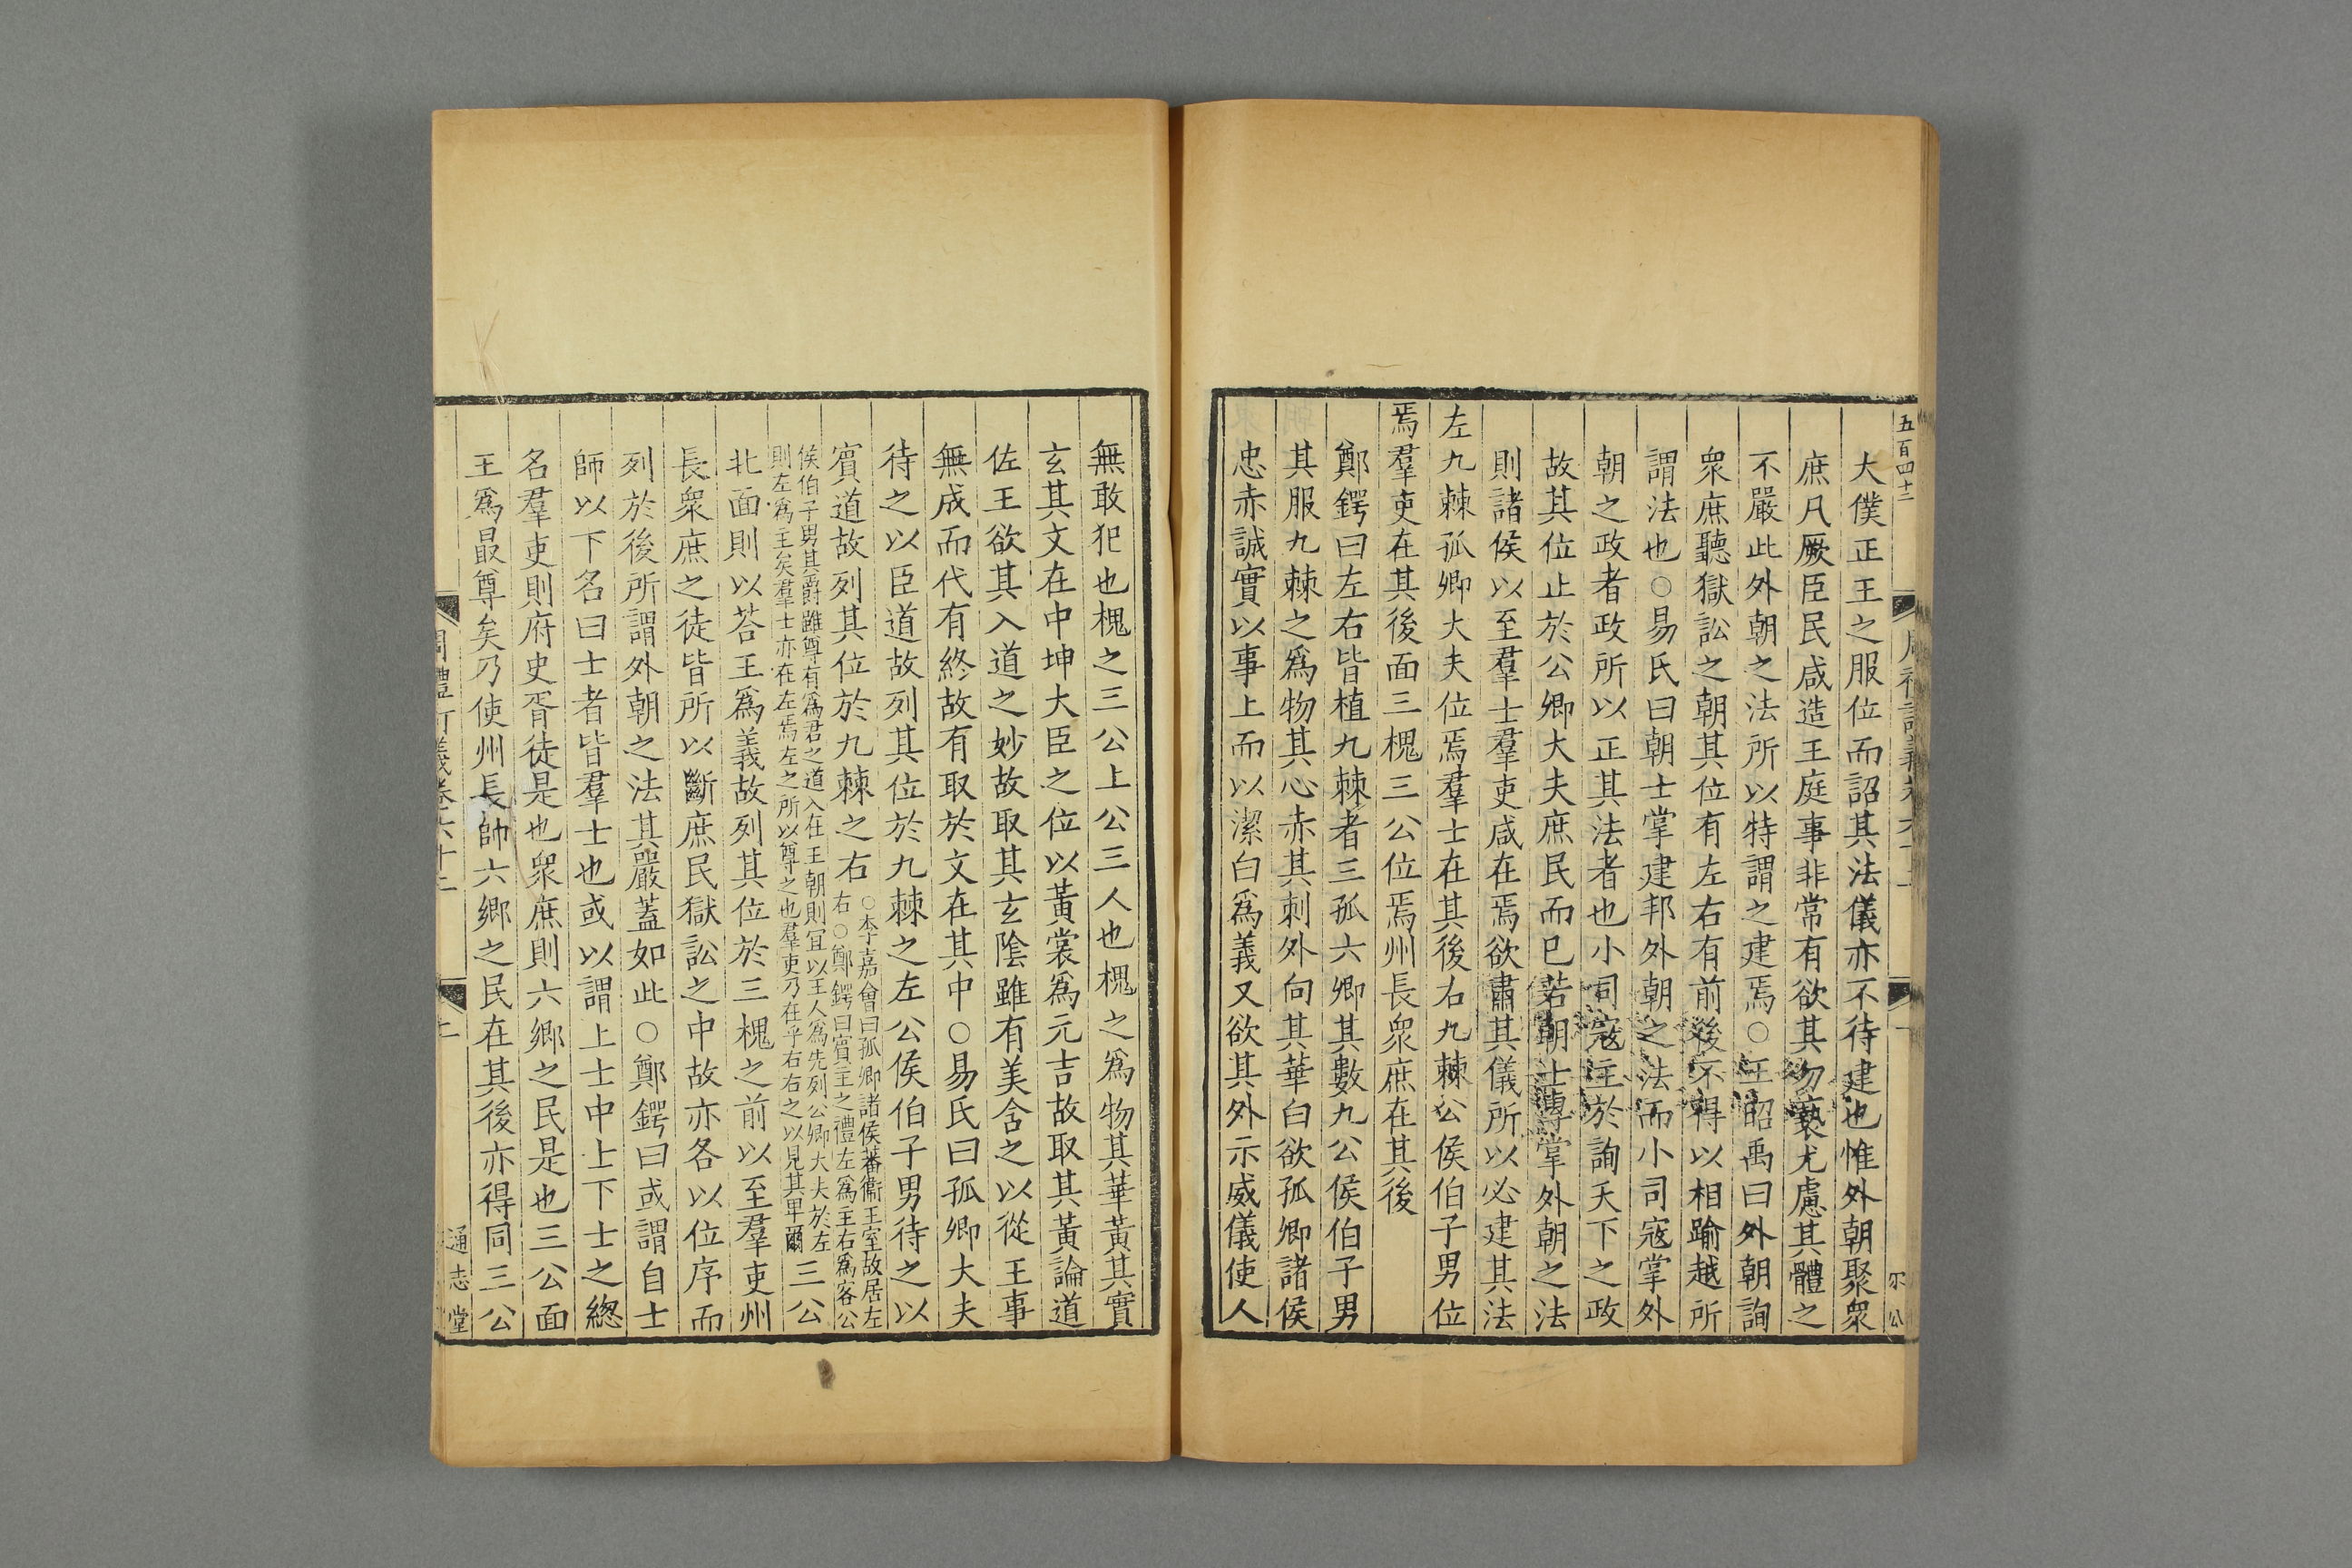 五百四十二
大僕正王之服位而詔其法儀亦不待建也惟外朝聚衆
庶凡厥臣民咸造王庭事非常有欲其勿褻尤慮其體之
不嚴此外朝之法所以特謂之建焉○王昭禹曰外朝詢
衆庶聽獄訟之朝其位有左右有前後不得以相踰越所
謂法也○易氏曰朝士掌建邦外朝之法而小司寇掌外
朝之政者政所以正其法者也小司寇主於詢天下之政
故其位止於公卿大夫庶民而已若朝士專掌外朝之法
則諸侯以至羣士羣吏咸在焉欲肅其儀所以必建其法
左九棘孤卿大夫位焉羣士在其後右九棘公侯伯子男位
焉羣吏在其後面三槐三公位焉州長衆庶在其後
鄭鍔曰左右皆植九棘者三孤六卿其數九公侯伯子男
其服九棘之爲物其心赤其刺外向其華白欲孤卿諸侯
忠赤誠實以事上而以潔白爲義又欲其外示威儀使人
無敢犯也槐之三公上公三人也槐之爲物其華黃其實
玄其文在中坤大臣之位以黃裳爲元吉故取其黃論道
佐王欲其入道之妙故取其玄陰雖有美含之以從王事
無成而代有終故有取於文在其中○易氏曰孤卿大夫
待之以臣道故列其位於九棘之左公侯伯子男待之以
賓道故列其位於九棘之右
○李嘉會曰孤卿諸侯蕃衞王室故居左
右○鄭鍔曰賓主之禮左爲主右爲客公
侯伯子男其爵雖尊有爲君之道入在王朝則宜以王人爲先列公卿大夫於左
則左爲主矣羣士亦在左焉左之所以尊之也羣吏乃在乎右右之以見其卑爾
三公
北面則以荅王爲義故列其位於三槐之前以至羣吏州
長衆庶之徒皆所以斷庶民獄訟之中故亦各以位序而
列於後所謂外朝之法其嚴蓋如此○鄭鍔曰或謂自士
師以下名曰士者皆羣士也或以謂上士中士下士之緫
名羣吏則府史胥徒是也衆庶則六鄉之民是也三公面
王爲最尊矣乃使州長帥六鄉之民在其後亦得同三公
通志堂